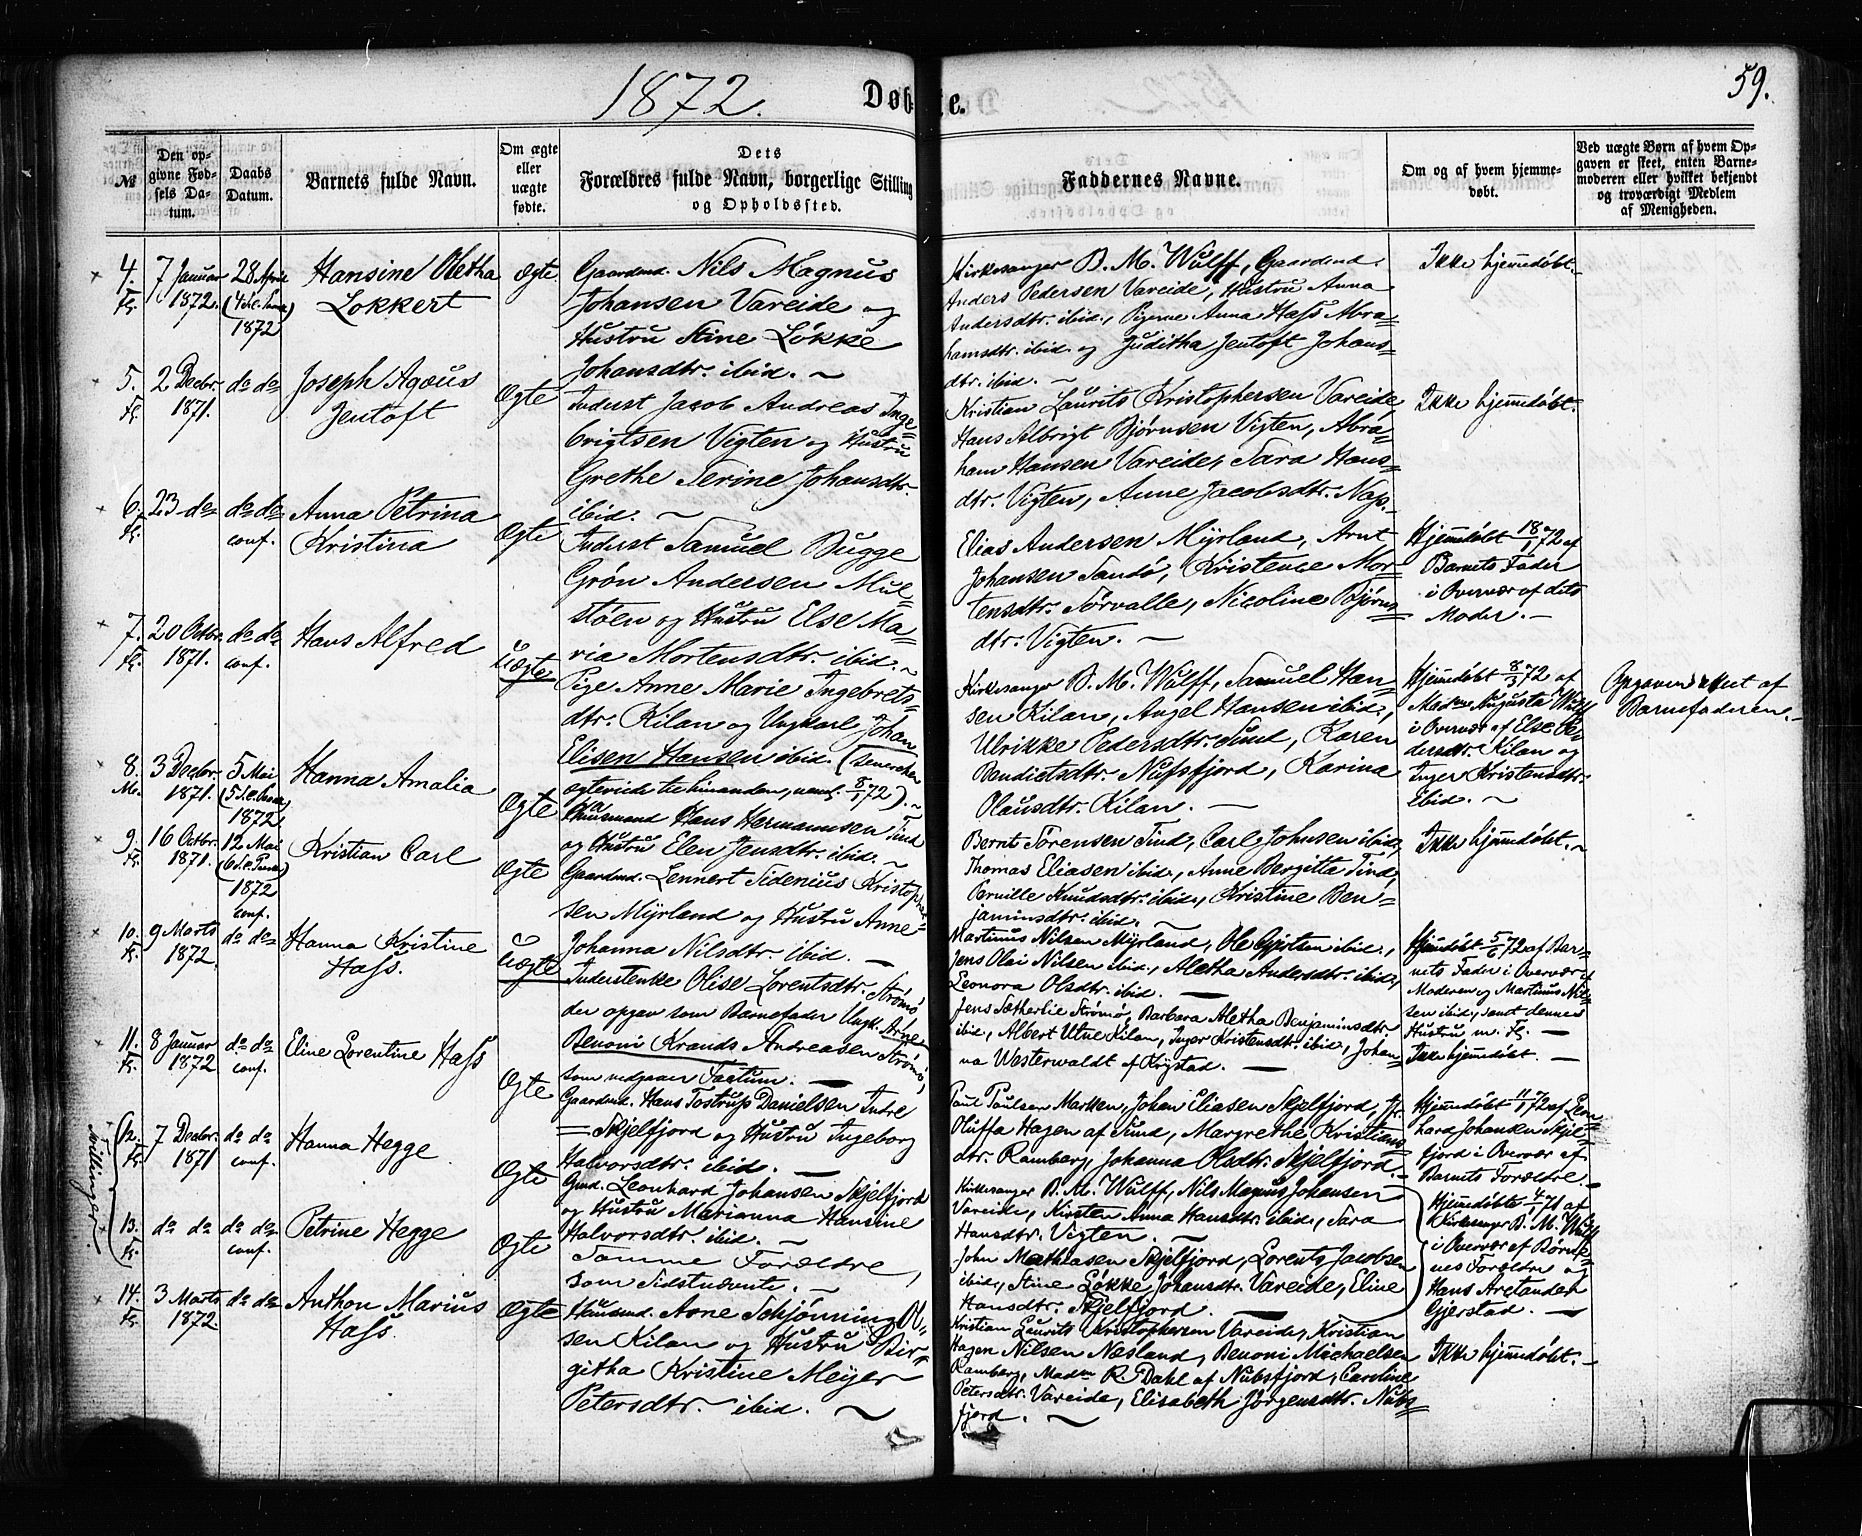 1872.
Døbte.
59.
№
Den opgivne Fødsels Datum.
Daabs Datum.
Barnets fulde Navn.
Om ægte eller uægte fødte.
Dets Forældres fulde Navn, borgerlige Stilling og Opholdssted.
Faddernes Navne.
Om og af hvem hjemmedøbt.
Ved uægte Børn af hvem Opgaven er skeet, enten Barnemoderen eller hvilket bekjendt og troværdigt Medlem af Menigheden.
4.
7 Januar
1872.
28 April
1872
Hansine Oletha
Lokkert
Ægte
Gaardmd. Nils Magnus
Johansen Vareide og
Hustru Stine Løkke
Johansdtr. ibid. ~
Kirkesanger B. M. Wulff, Gaardmd.
Anders Pedersen Vareide, Hustru Anna
Andersdtr. ibid., Pigerne Anna Hass Abra=
hamsdtr. ibid. og Juditha Jentoft Johans=
dtr. ibid. ~
Ikke hjemmedøbt.
5.
2 Decbr.
1871.
do do
Joseph Agæus
Jentoft
Ægte
Inderst Jacob Andreas Inge=
brigtsen Vigten og Hustru
Grethe Serine Johansdtr.
ibid. ~
Kristian Laurits Kristophersen Vareide,
Hans Albrigt Bjørnsen Vigten, Abra=
ham Hansen Vareide, Sara Hans=
dtr. Vigten, Anne Jacobsdtr. Nap.
Ikke hjemmedøbt.
6.
23 do
do do
conf.
Anna Petrina
Kristina
Ægte
Inderst Samuel Bugge
Grøn Andersen Mul=
støen og Hustru Else Ma=
ria Mortensdtr. ibid. ~
Elias Andersen Myrland, Arnt
Johansen Sandø, Kristence Mor=
tensdtr. Sørvalle, Nicoline Bjørns=
dtr. Vigten. ~
Hjemmedøbt 18/1 72 af
Barnets Fader
i Overvær af dets
Moder. ~
7.
20 Octbr.
1871.
do do
conf.
Hans Alfred
Uægte
Pige Anne Marie Ingebrets=
dtr. Kilan og Ungkarl Johan
Elisen Hansen ibid. (senere
ægteviede til hinanden, neml. 8/1 72). ~
Kirkesanger B. M. Wulff, Samuel Han=
sen Kilan, Angel Hansen ibid,
Ulrikke Pedersdtr. Sund, Karen
Bendietsdtr. Nufsfjord, Karina
Olausdtr. Kilan. —
Hjemmedøbt 8/3 72 af
Madme Augusta Wulff
i Overvær af Else Pe=
dersdtr. Kilan og
Inger Kristensdtr.
ibid. ~
Opgaven skeet af
Barnefaderen. ~
8.
3 Decbr.
1871.
5 Mai
1872
Hanna Amalia
Ægte
Huusmand Hans Hermannsen Tind
og Hustru Elen Jensdtr. ibid. ~
Bernt Sørensen Tind, Carl Johnsen ibid,
Thomas Eliasen ibid., Anne Bergitta Tind,
Pernille Knudsdtr. ibid., Kristine Ben=
jaminsdtr. ibid.
Ikke hjemmedøbt. ~
9.
16 Octbr.
1871.
12 Mai
1872
conf.
Kristian Carl
Ægte
Gaardmd. Lennert Sidenius Kristopher=
sen Myrland og Hustru Anne=
Johanna Nilsdtr. ibid. —
Martinus Nilsen Myrland, Ole Gjertsen ibid.,
Jens Olai Nilsen ibid., Aletha Andersdtr. ibid.,
Leonora Olsdtr. ibid. —
Hjemmedøbt 5/6 72 af Bar=
nets Fader i Overvær af
Moderen og Martinus Nil=
sen ibid, samt dennes
Hustru m. Fl. —
10.
9 Marts
1872.
do do
Hanna Kristine
Hass.
Uægte
Inderstenke Olise Lorentsdtr. Strømø
der opgav som Barnefader Ungk. Arne
Benoni Krands Andreasen Strømø,
som vedgaaer Factum. —
Jens Sætherlie Strømø, Barbara Aletha Benjaminsdtr.
ibid., Albert Utne Kilan, Inger Kristensdtr. ibid, Johan=
na Westerwaldt af Krystad. —
Ikke hjemmedøbt. —
11.
8 Januar
1872
do do
conf.
Eline Lorentine Hass
Ægte
Gaardmd. Hans Tostrup Danielsen Indre
= Skjelfjord og Hustru Ingeborg
Halvorsdtr. ibid. —
Paul Paulsen Marken, Johan Eliasen Skjelfjord, Jfr.
Oluffa Hagen af Sund, Margrethe Kristians=
dtr. Ramberg, Johanna Olsdtr. Skjelfjord. —
Hjemmedøbt 11/1 72 af Leon=
hard Johansen Skjel=
fjord i Overvær af
Barnets Forældre. —
12.
7 Decbr.
1871
do do
conf.
Hanna Hegge
Ægte
Gmd. Leonhard Johansen Skjelfjord
og Hustru Marianna Hansine
Halvorsdtr. ibid. ~
Kirkesanger B. M. Wulff, Nils Magnus Johansen
Vareide, Kirsten Anna Hansdtr. ibid., Sara
Hansdtr. Vigten. ~
Hjemmedøbte 71 af
Kirkesanger B. M. Wulff
i Overvær af Børne=
nes Forældre og
Hans Arctander
Gjerstad. —
Tvillinger.
13.
do do
do do
conf.
Petrine Hegge
Ægte
Samme Forældre,
som Sidstnævnte. ~
John Mathiasen Skjelfjord, Lorents Jacobsen
ibid., Stine Løkke Johansdtr. Vareide, Eline
Hansdtr. Skjelfjord. —
14.
3 Marts
1872
do do
Anthon Marius
Hass.
Ægte
Huusmd. Arne Schjønning Ol=
sen Kilan og Hustru Bir=
githa Kristine Meyer
Petersdtr. ibid. ~
Kristian Laurits Kristophersen Vareide, Kristian
Hagen Nilsen Næsland, Benoni Michaelsen
Ramberg, Madm R. Dahl af Nubsfjord, Caroline
Petersdtr. Vareide, Elisabeth Jørgensdtr. Nubs=
fjord. ~
Ikke hjemmedøbt. —